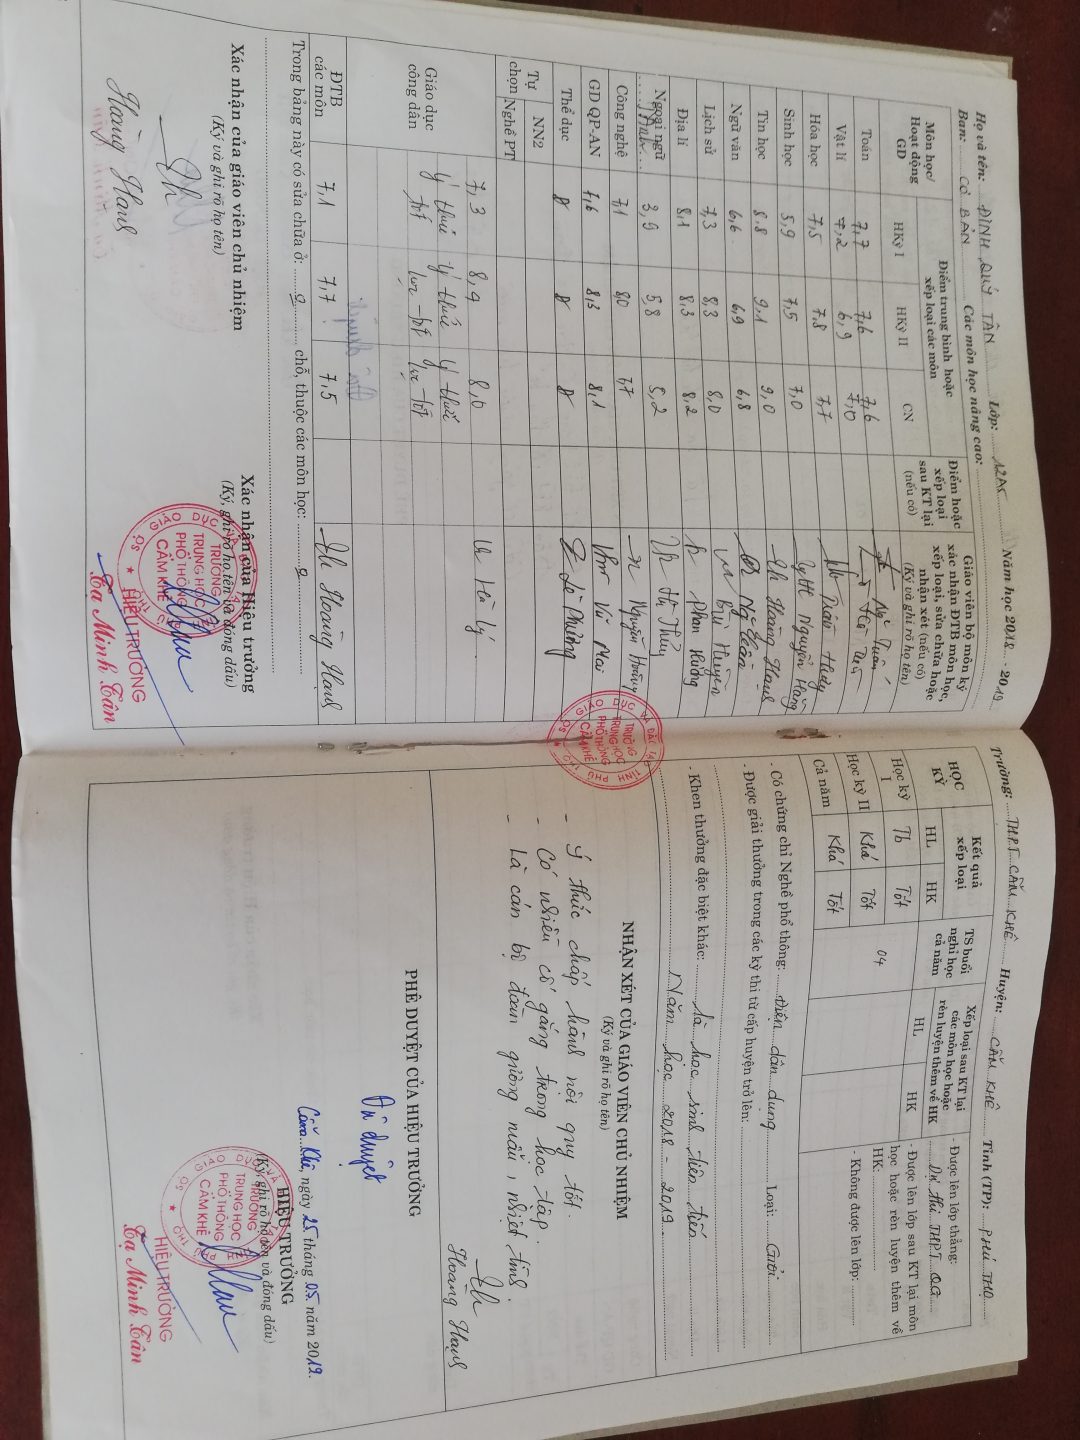 Họ và tên: ĐINH QUÝ TÂN Lớp: 12A5 Năm học 2018 - 2019
Ban: CƠ BẢN Các môn học nâng cao:
Môn học/ Hoạt động GD
Điểm trung bình hoặc xếp loại các môn
HKỳ I HKỳ II CN
Điểm hoặc xếp loại sau KT lại (nếu có)
Giáo viên bộ môn ký xác nhận ĐTB môn học, xếp loại, sửa chữa hoặc nhận xét (nếu có)
(Ký và ghi rõ họ tên)
Toán 7,7 7,6 7,6
Vật lí 7,2 6,9 7,0
Hóa học 7,5 7,8 7,7
Sinh học 5,9 7,5 7,0 Nguyễn Hằng
Tin học 8,8 9,1 9,0 Hoàng Hạnh
Ngữ văn 6,6 6,9 6,8
Lịch sử 7,3 8,3 8,0 Bùi Huyền
Địa lí 8,1 8,3 8,2 Phan Hường
Ngoại ngữ Anh 3,9 5,8 5,2 Hà Thủy
Công nghệ 7,1 8,0 7,7 Nguyễn Hoàng
GD QP-AN 7,6 8,3 8,1 Vũ Mai
Thể dục Đ Đ Đ Lê Phương
Tự chọn NN2
Nghề PT
Giáo dục công dân 7,3 8,4 8,0 Hà Lý
ý thức ý thức ý thức
tốt lực tốt lực tốt
ĐTB các môn 7,1 7,7 7,5 Hoàng Hạnh
Trong bảng này có sửa chữa ở: 0 chỗ, thuộc các môn học: 0
Xác nhận của giáo viên chủ nhiệm
(Ký và ghi rõ họ tên)
Hoàng Hạnh
Xác nhận của Hiệu trưởng
(Ký, ghi rõ họ tên và đóng dấu)
SỞ GIÁO DỤC VÀ ĐÀO TẠO TỈNH PHÚ THỌ
TRƯỜNG
TRUNG HỌC
PHỔ THÔNG
CẨM KHÊ
HIỆU TRƯỞNG
Tạ Minh Tân
Trường: THPT CẨM KHÊ Huyện: CẨM KHÊ Tỉnh (TP): PHÚ THỌ
HỌC KỲ
Kết quả xếp loại
HL HK
TS buổi nghỉ học cả năm
Xếp loại sau KT lại các môn học hoặc rèn luyện thêm về HK
HL HK
Học kỳ I Tb Tốt
Học kỳ II Khá Tốt
Cả năm Khá Tốt
04
- Được lên lớp thẳng:
Dự thi THPT QG
- Được lên lớp sau KT lại môn học hoặc rèn luyện thêm về HK:
- Không được lên lớp:
- Có chứng chỉ Nghề phổ thông: Điện dân dụng Loại: Giỏi
- Được giải thưởng trong các kỳ thi từ cấp huyện trở lên:
- Khen thưởng đặc biệt khác: Là học sinh tiên tiến
Năm học 2018 - 2019.
NHẬN XÉT CỦA GIÁO VIÊN CHỦ NHIỆM
(Ký và ghi rõ họ tên)
- Ý thức chấp hành nội quy tốt.
- Có nhiều cố gắng trong học tập.
- Là cán bộ đoàn gương mẫu, nhiệt tình.
Hoàng Hạnh
PHÊ DUYỆT CỦA HIỆU TRƯỞNG
Đã duyệt
Cẩm Khê, ngày 25 tháng 05 năm 2019.
HIỆU TRƯỞNG
(Ký, ghi rõ họ tên và đóng dấu)
SỞ GIÁO DỤC VÀ ĐÀO TẠO TỈNH PHÚ THỌ
TRƯỜNG
TRUNG HỌC
PHỔ THÔNG
CẨM KHÊ
HIỆU TRƯỞNG
Tạ Minh Tân